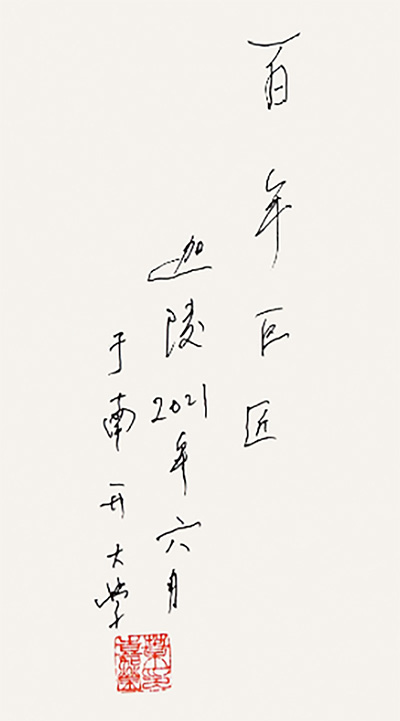 百年巨匠
迦陵2021年六月
于南开大学
葉嘉瑩